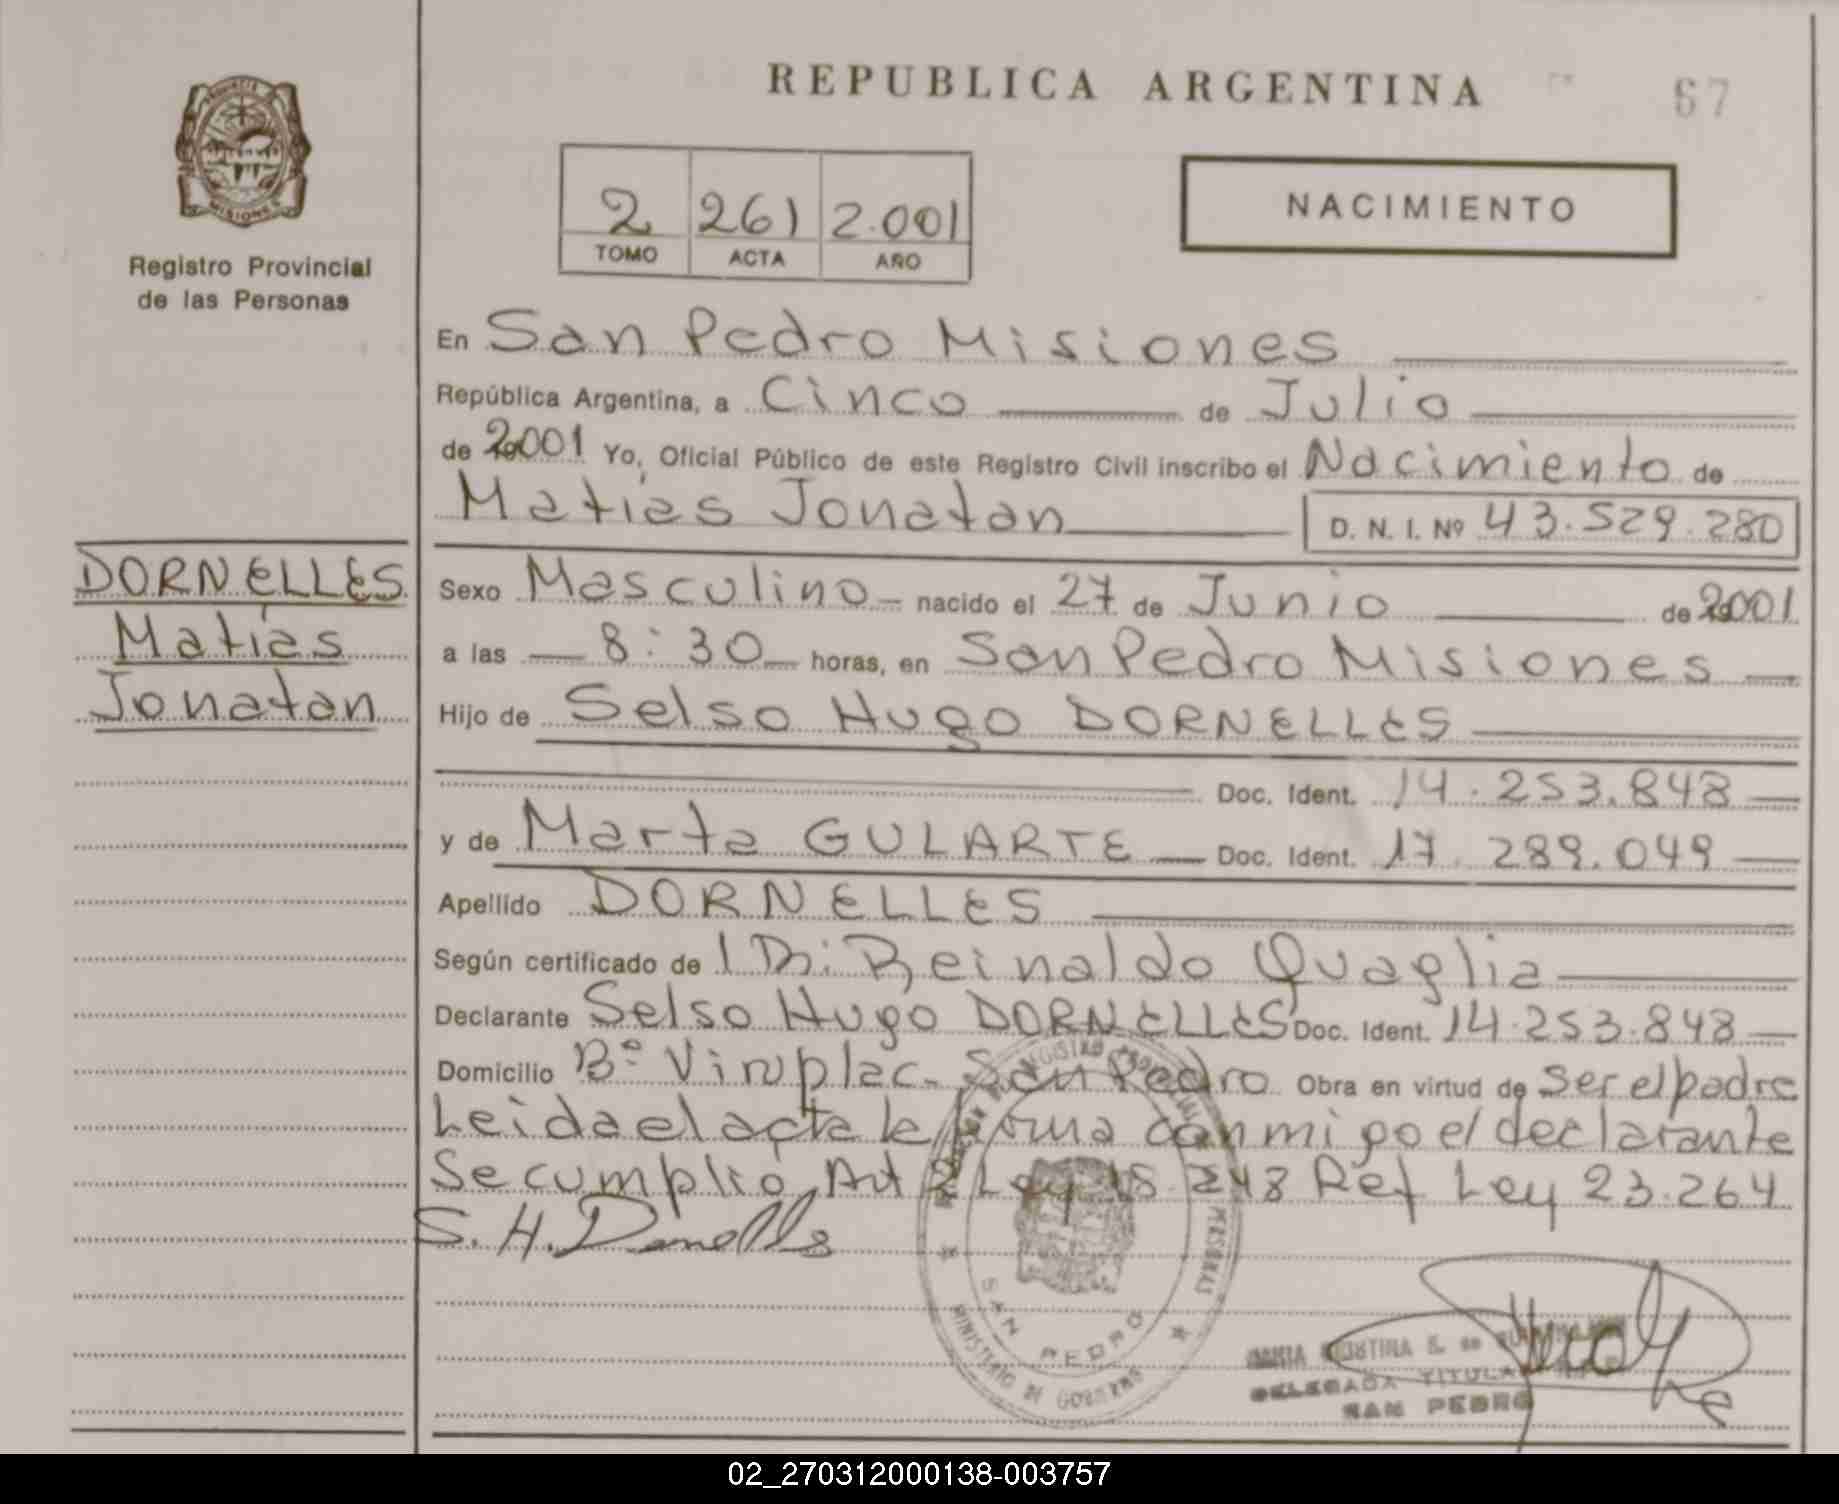 REPUBLICA ARGENTINA
67
PROVINCIA
MISIONES
Registro Provincial
de las Personas
2 261 2.001
TOMO ACTA AÑO
NACIMIENTO
En San Pedro Misiones
República Argentina, a Cinco de Julio
de 2001 Yo, Oficial Público de este Registro Civil inscribo el Nacimiento de
Matías Jonatan D. N. I. Nº 43.529.280
DORNELLES
Matías
Jonatan
Sexo Masculino nacido el 27 de Junio de 2001
a las 8:30 horas, en San Pedro Misiones
Hijo de Selso Hugo DORNELLES
Doc. Ident. 14.253.848
y de Marta GULARTE Doc. Ident. 17.289.049
Apellido DORNELLES
Según certificado de Reinaldo Quaglia
Declarante Selso Hugo DORNELLES Doc. Ident. 14.253.848
Domicilio Bº Viroplac. San Pedro Obra en virtud de ser el padre
Leida el acta la firma conmigo el declarante
Se cumplio Art 2 Ley 18.248 Ref Ley 23.264
S. H. Dornelles
REGISTRO PROVINCIAL DE LAS PERSONAS
SAN PEDRO
MINISTERIO DE GOBIERNO
DELEGADA TITULAR
SAN PEDRO
02_270312000138-003757